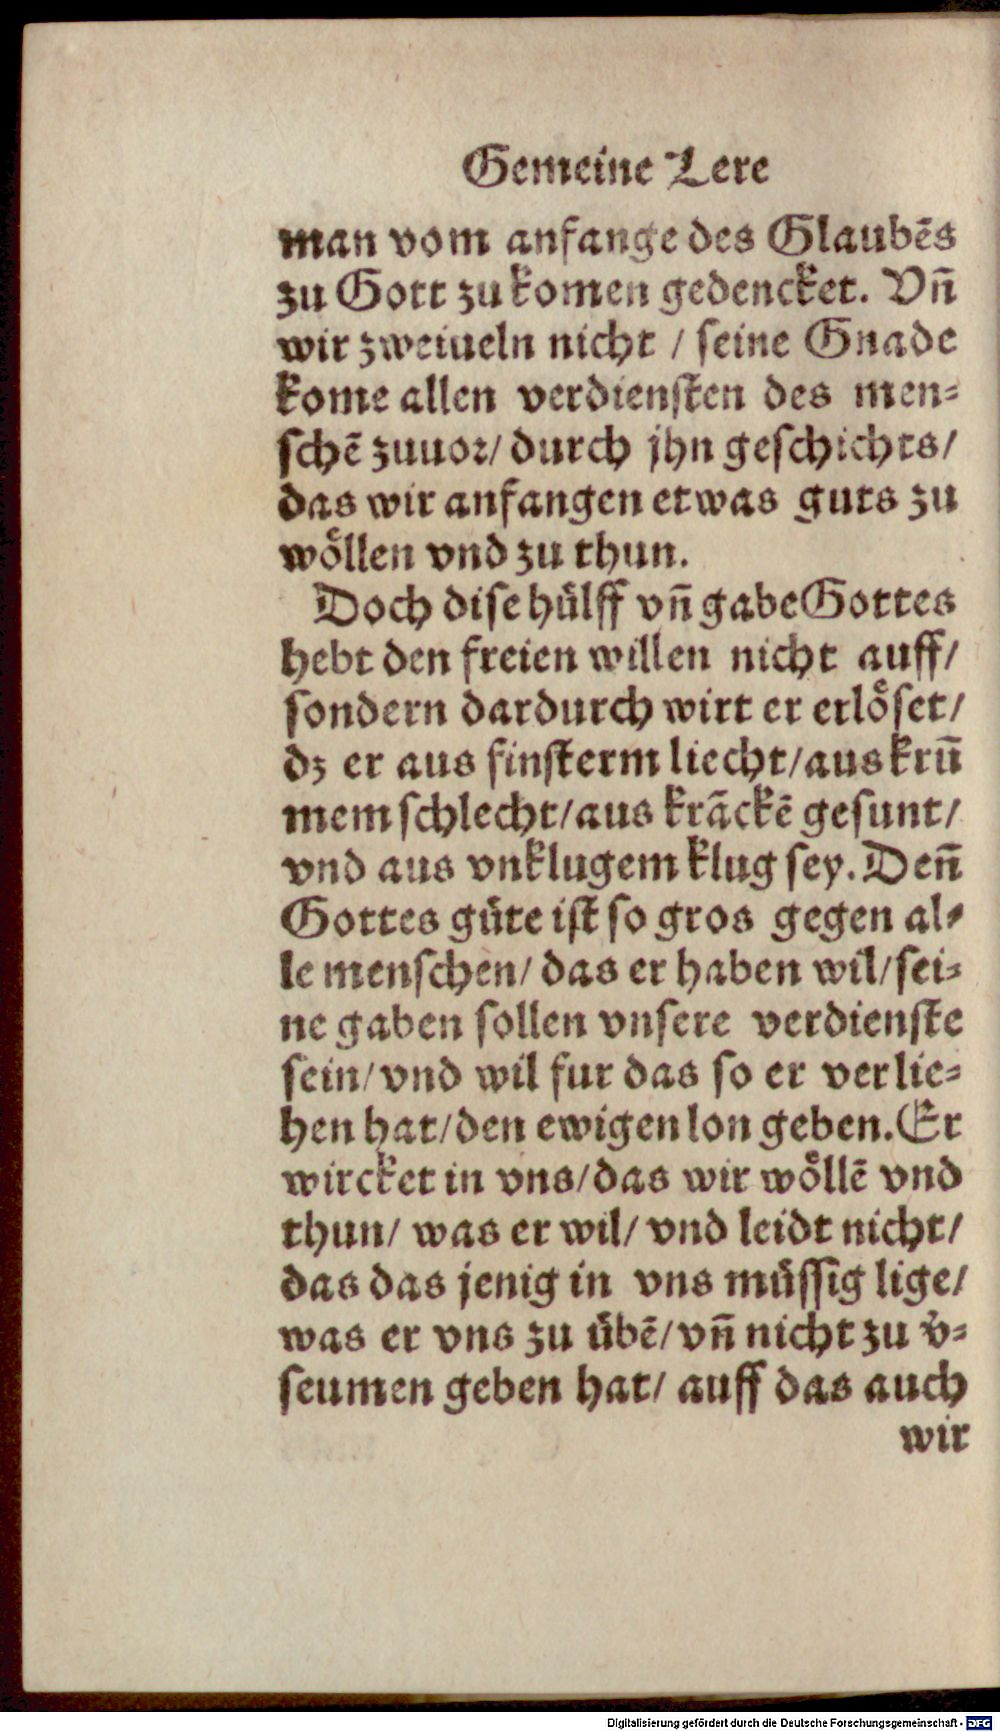 Gemeine Lere
man vom anfange des Glaubẽs
zu Gott zu komen gedencket. Vñ
wir zweiueln nicht / seine Gnade
kome allen verdiensten des men⸗
schẽ zuuor/ durch jhn geschichts/
das wir anfangen etwas guts zu
woͤllen vnd zu thun.
Doch dise huͤlff vñ gabe Gottes
hebt den freien willen nicht auff/
sondern dardurch wirt er erloͤset/
dz er aus finsterm liecht/aus krum̃
mem schlecht/aus krãckẽ gesunt/
vnd aus vnklugem klug sey. Den̄
Gottes guͤte ist so gros gegen al⸗
le menschen/ das er haben wil/sei⸗
ne gaben sollen vnsere verdienste
sein/vnd wil fur das so er verlie⸗
hen hat/den ewigen lon geben. Er
wircket in vns/das wir woͤllẽ vnd
thun/ was er wil/ vnd leidt nicht/
das das jenig in vns muͤssig lige/
was er vns zu uͤbẽ/vñ nicht zu v̓⸗
seumen geben hat/ auff das auch
wir
Digitalisierung gefördert durch die Deutsche Forschungsgemeinschaft - DFG